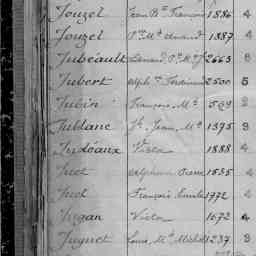 Jouzel Jean Bte François 1886 4
Jouzel Pre Md 1887 4
Jubéault 2663 8
Jubert Alph. Ferdinand 2500 5
Jubin François, Md 509 2
Jublanc Jh Jean, Md 1375 3
Judéaux Victor 1888 4
Juet Alphonse Pierre 1535
Juet François 1772 4
Jugan Victor 1672 4
Juguet Louis, Md Michel 1237 3